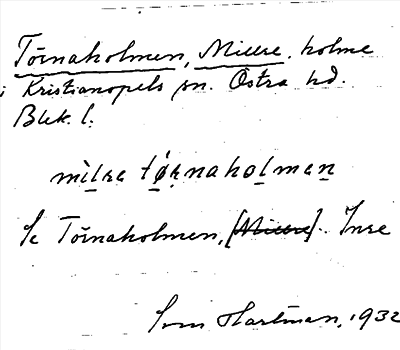 Törnaholmen, Mittre. holme
i Kristianopels sn. Östra hd.
Blek. l.
mìtra tǿrnaholmen
Se Törnaholmen, [Mittre]. Inre
Sven Hartman, 1932